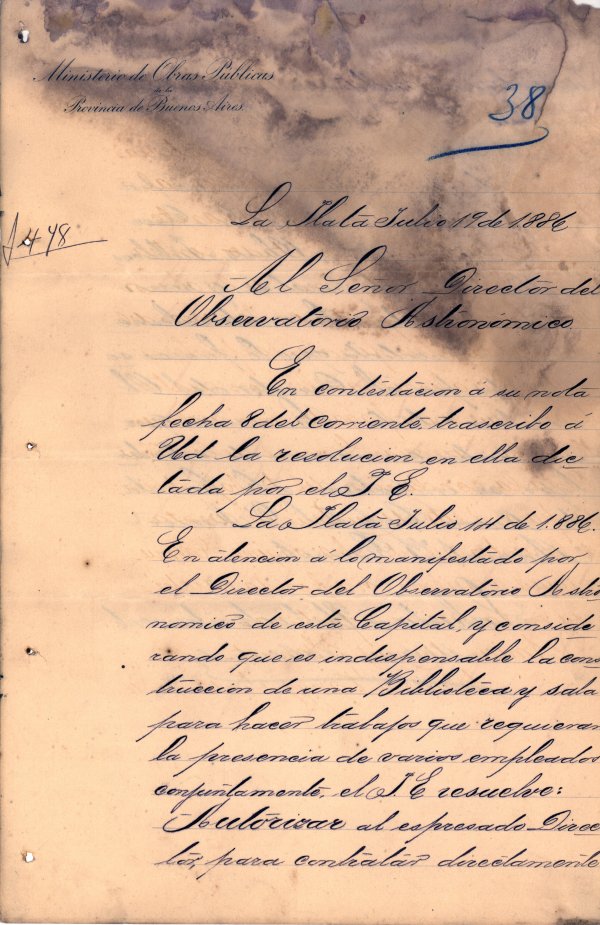 Ministerio de Obras Públicas
de la
Provincia de Buenos Aires
38
La Plata Julio 19 de 1886
448
Al Señor Director del
Observatorio Astronómico
En contestacion á su nota
fecha 8 del corriente, trascribo á
Ud la resolucion en ella dic
tada por el P. E.
La Plata Julio 14 de 1.886.
En atencion á lo manifestado por
el Director del Observatorio Astro
nomico de esta Capital, y conside
rando que es indispensable la cons
truccion de una Biblioteca y sala
para hacer trabajos que requieran
la presencia de varios empleados
conjuntamente, el P. E resuelve:
Autorizar al espresado Direc
tor, para contratar directamente